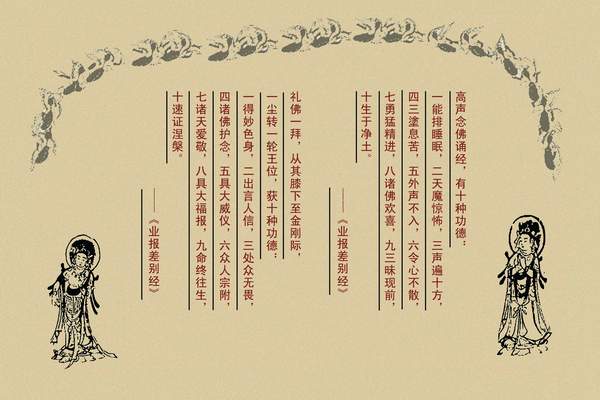 高声念佛诵经，有十种功德：
一能排睡眠，二天魔惊怖，三声遍十方，
四三塗息苦，五外声不入，六令心不散，
七勇猛精进，八诸佛欢喜，九三昧现前，
十生于净土。
——《业报差别经》
礼佛一拜，从其膝下至金刚际，
一尘转一轮王位，获十种功德：
一得妙色身，二出言人信，三处众无畏，
四诸佛护念，五具大威仪，六众人宗附，
七诸天爱敬，八具大福报，九命终往生，
十速证涅槃。
——《业报差别经》